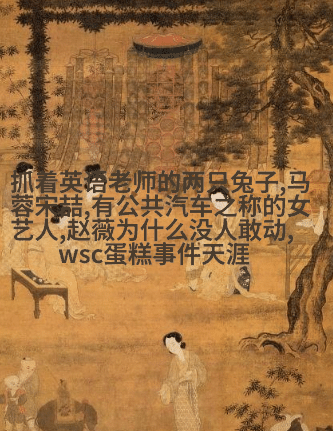 抓着英语老师的两只兔子,马
蓉宋喆,有公共汽车之称的女
艺人,赵薇为什么没人敢动,
wsc蛋糕事件天涯